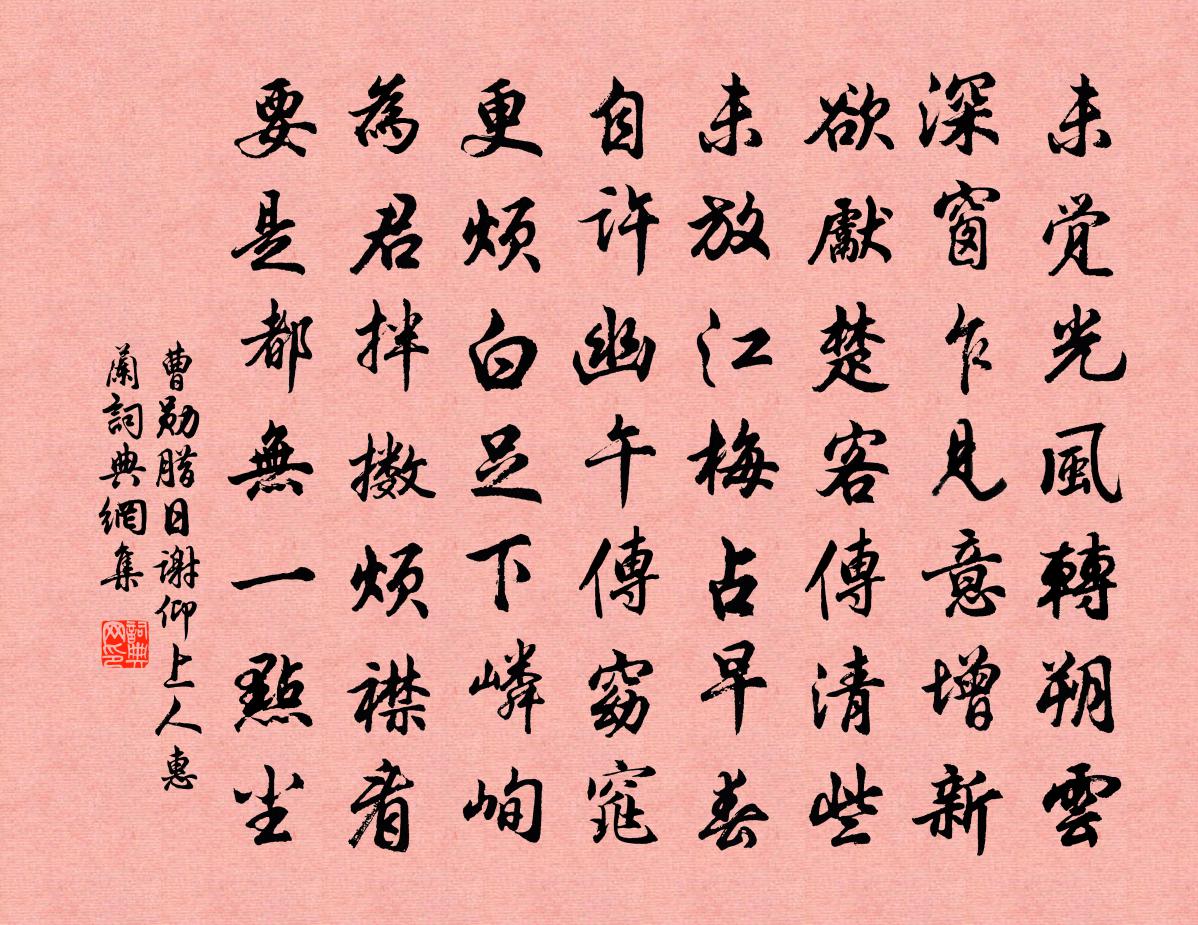 未觉光風轉朔雲
深窗乍見意增新
欲獻楚客傳清些
未放江梅占早春
自許幽午傳窈窕
更烦白足下嶙峋
為君拌擻烦襟看
要是都無一點尘
曹勛腊日谢仰上人惠
蘭詞典網集
詞典网印